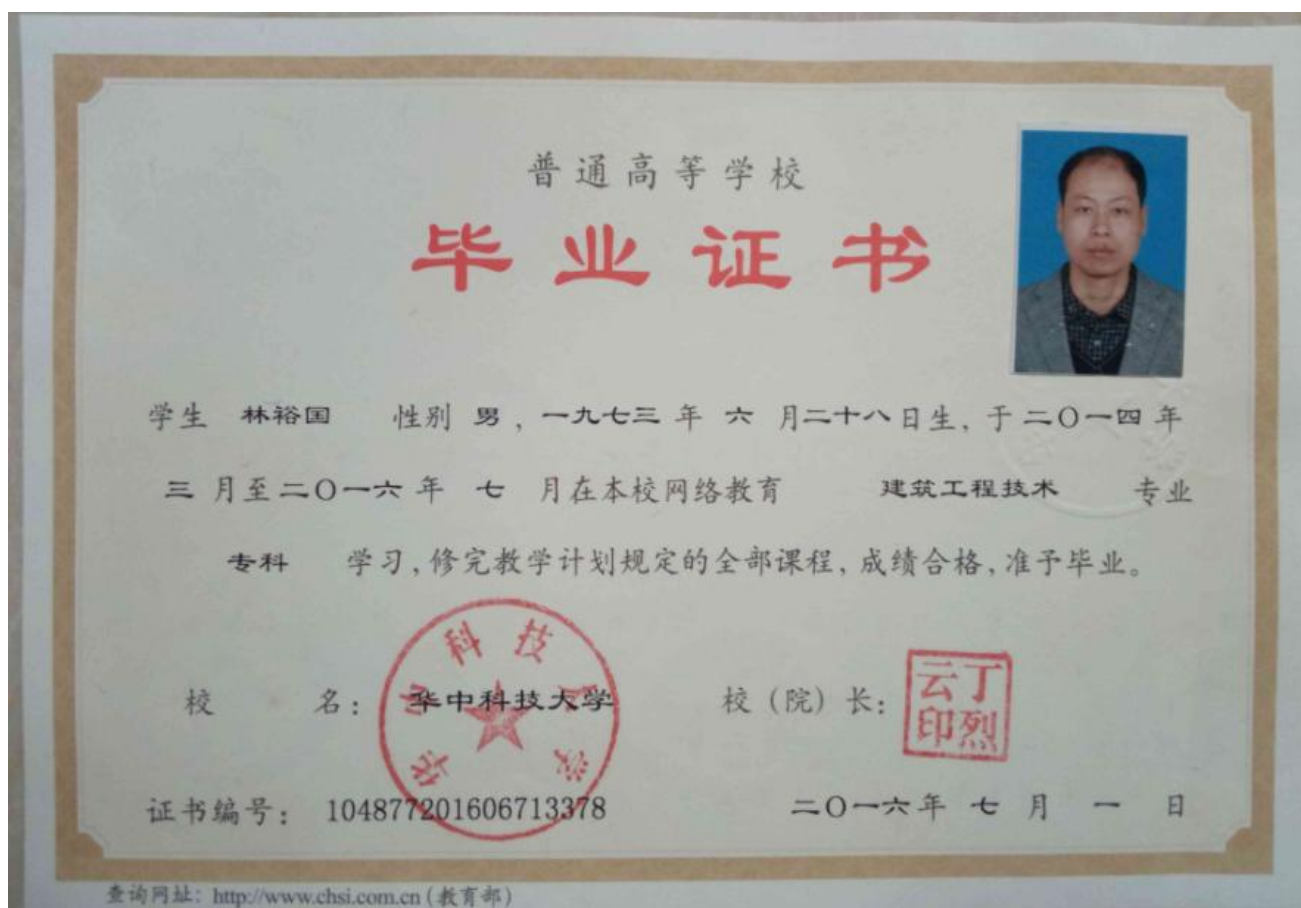 普通高等学校
毕业证书
学生 林裕国 性别 男，一九七三 年 六 月二十八日生，于二〇一四年
三 月至二〇一六年 七 月在本校网络教育 建筑工程技术 专业
专科 学习，修完教学计划规定的全部课程，成绩合格，准予毕业。
华中科技大学
校 名：华中科技大学 校（院）长：丁烈云印
证书编号：104877201606713378 二〇一六年 七 月 一 日
查询网址：http://www.chsi.com.cn（教育部）